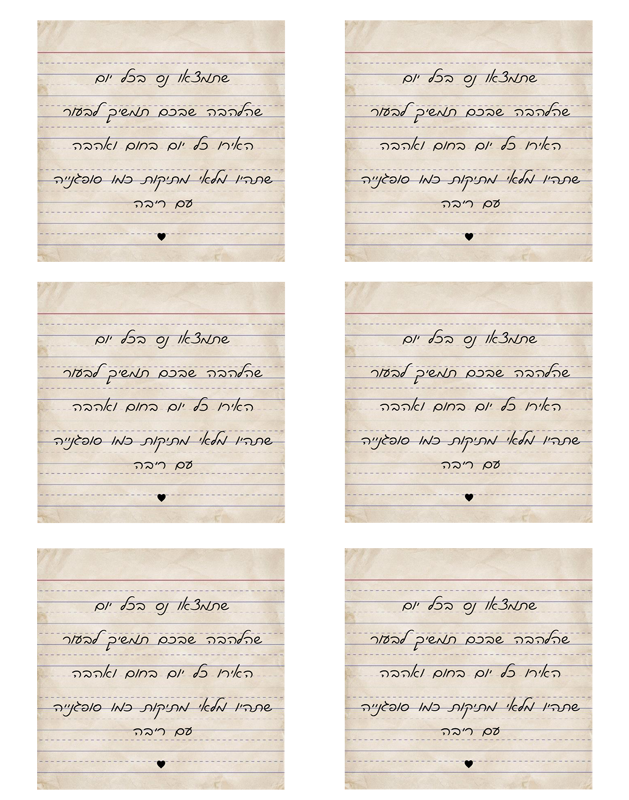 שתמצאו נס בכל יום
שהלהבה שבכם תמשיך לבעור
האירו כל יום בחום ואהבה
שתהיו מלאי מתיקות כמו סופגנייה
עם ריבה
שתמצאו נס בכל יום
שהלהבה שבכם תמשיך לבעור
האירו כל יום בחום ואהבה
שתהיו מלאי מתיקות כמו סופגנייה
עם ריבה
שתמצאו נס בכל יום
שהלהבה שבכם תמשיך לבעור
האירו כל יום בחום ואהבה
שתהיו מלאי מתיקות כמו סופגנייה
עם ריבה
שתמצאו נס בכל יום
שהלהבה שבכם תמשיך לבעור
האירו כל יום בחום ואהבה
שתהיו מלאי מתיקות כמו סופגנייה
עם ריבה
שתמצאו נס בכל יום
שהלהבה שבכם תמשיך לבעור
האירו כל יום בחום ואהבה
שתהיו מלאי מתיקות כמו סופגנייה
עם ריבה
שתמצאו נס בכל יום
שהלהבה שבכם תמשיך לבעור
האירו כל יום בחום ואהבה
שתהיו מלאי מתיקות כמו סופגנייה
עם ריבה